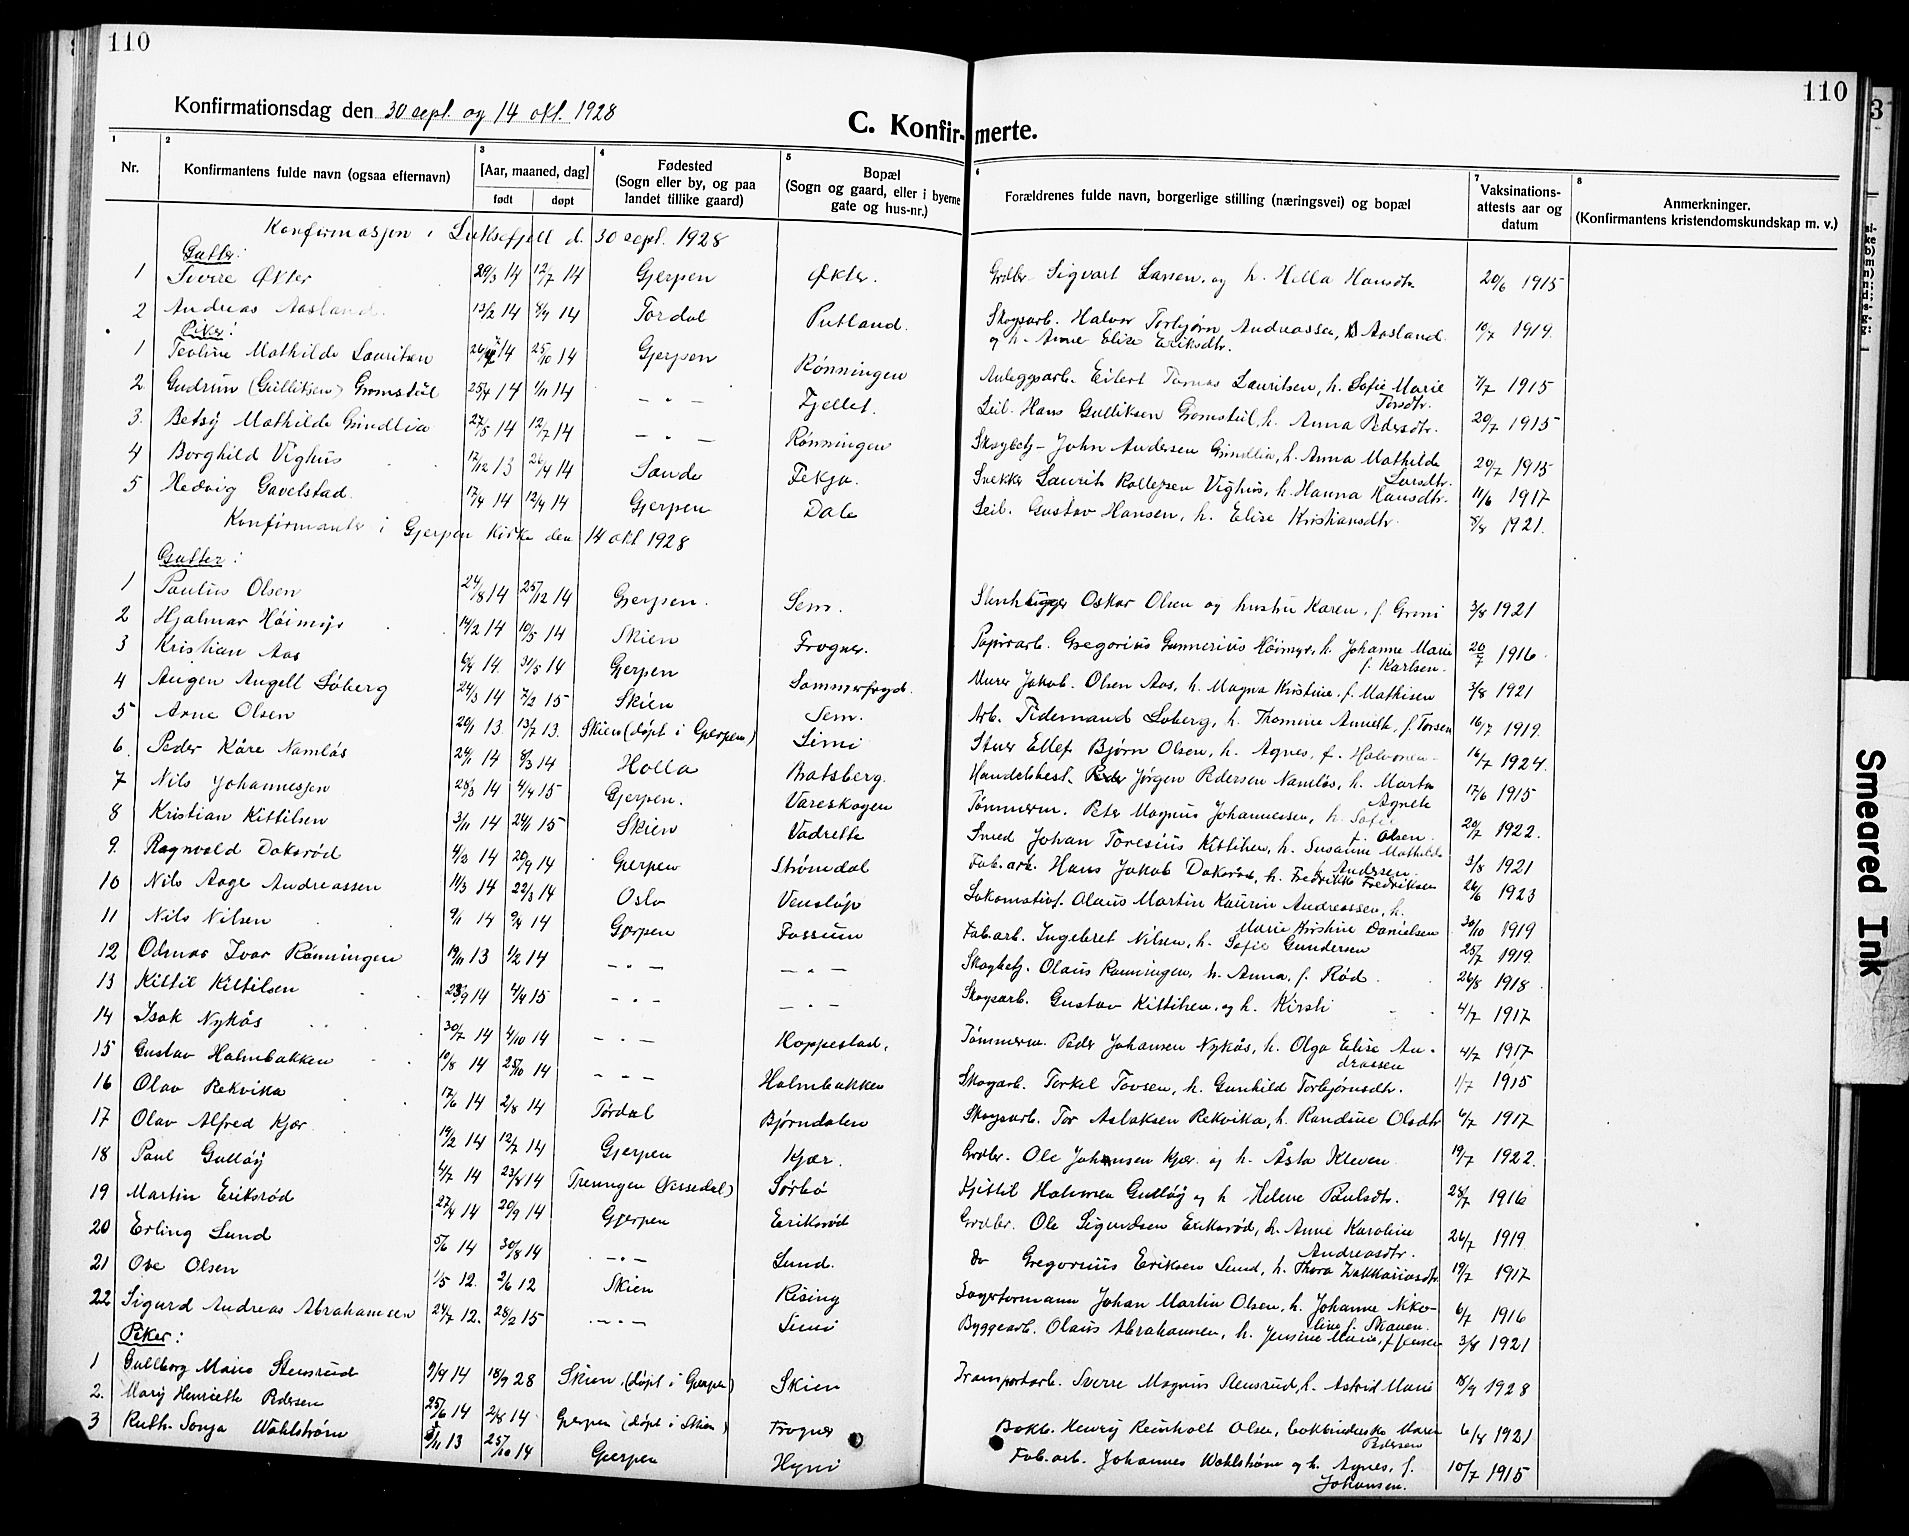 110
110
Konfirmationsdag den 30 sept. og 14 okt. 1928
C. Konfir- merte.
1 2 3 4 5 6 7 8
Nr. Konfirmantens fulde navn (ogsaa efternavn) [Aar, maaned, dag] født døpt Fødested (Sogn eller by, og paa landet tillike gaard) Bopæl (Sogn og gaard, eller i byerne gate og hus-nr.) Forældrenes fulde navn, borgerlige stilling (næringsvei) og bopæl Vaksinations-attests aar og datum Anmerkninger. (Konfirmantens kristendomskundskap m. v.)
Konfirmasjon i Luksefjell d. 30 sept. 1928
Gutter:
1 Sverre Økter 29/3 14 12/7 14 Gjerpen Økter. Grdbr. Sigvart Larsen, og h. Hella Hansdtr. 20/6 1915
2 Andreas Aasland 13/2 14 14 Tørdal Putland. Skogsarb. Halvor Torbjørn Andreassen, Aasland 10/7 1914
og h. Anne Elise Eriksdtr.
Piker:
1 Teoline Mathilde Lauritsen 14 25/10 14 Gjerpen Rønningen Anleggsarb. Eilert Tomas Lauritsen, h. Sofie Marie 7/7 1915
Torsdtr.
2 Gudrun (Gulliksen) Gromstul 25/4 14 1/11 14 - " - Fjellet. Leil. Hans Gulliksen Gromstul, h. Anna Pedersdtr. 20/7 1915
3. Betsy Mathilde Grindlia 27/5 14 12/7 14 - " - Rønningen Skogbetj. John Andersen Grindlia, h. Anna Mathilde 20/7 1915
Larsdtr.
4 Borghild Vighus 17/12 13 26/4 14 Sande Fekja. Snekker Laurits Rollefsen Vighus, h. Hanna Hansdtr. 11/6 1917
5 Hedvig Gavelstad 17/4 14 12/4 14 Gjerpen Dale Leil. Gustav Hansen, h. Elise Kristiansdtr. 1921.
Konfirmanter i Gjerpen kirke den 14 okt 1928
Gutter:
1 Paulus Olsen 24/8 14 25/12 14 Gjerpen. Sem. Oskar Olsen og hustru Karen, f. Grini 3/8 1921
2 Hjalmar Höimyr 14/2 14 10/5 14 Skien Frogner. Papirarb. Gregorius Gunnerius Höimyr, h. Johanne Marie 20/7 1916
f. Karlsen.
3 Kristian Aas 14. 31/5 14 Gjerpen Sommerfryd. Murer Jakob Olsen Aas, h. Magna Kristine, f. Mathisen 3/8 1921
4 Augen Angell Löberg 24/3 14 7/2 15 Skien Sem. Arb. Tidemand Loberg, h. Thomine Annette, f. Torsen 16/7 1919.
5 Arne Olsen 20/11 13 13/7 13. Skien (døpt i Gjerpen) Limi Stuer Ellef Bjørn Olsen, h. Agnes, f. Halvorsen 16/7 1924.
6. Peder Kåre Namløs 24/1 14 8/3 14 Holla Bratsberg. Handelsbest. Jørgen Pedersen Namløs, h. Marta 17/6 1915
Agnete
7 Nils Johannessen 28/3 14 4/4 15 Gjerpen. Vareskogen Tømmerm. Peter Magnus Johannessen, h. Sofie 20/7 1922.
f. Olsen.
8 Kristian Kittilsen 3/11 14 24/1 15 Skien Vadrette Smed Johan Toresius Kittilsen, h. Susanne Mathilde 3/8 1921
f. Andersen.
9. Ragnvald Doksrød 4/3 14 20/9 14 Gjerpen Strømdal Fab.arb. Hans Jakob Doksrød, h. Fredrikke Fredriksen 26/6 1923
10 Nils Aage Andreassen 11/3 14 22/3 14 Oslo Venstøp Lokomotivf. Olaus Martin Kaurin Andreassen, h. 30/10 1919
Marie Kirstine Danielsen
11 Nils Nilsen 9/1 14 9/4 14 Gjerpen Fossum Fab.arb. Ingebret Nilsen, h. Sofie Gundersen 25/7 1919.
12 Odmar Ivar Rønningen 19/11 13 1/2 14 - " - - " - Skogbetj. Olaus Rønningen, h. Anna, f. Rød 26/8 1918
13 Kittil Kittilsen 14 4/4 15 - " - - " - Skogsarb. Gustav Kittilsen, og h. Kirsti 4/7 1917
14 Isak Nykås 30/7 14 4/10 14 - " - Hoppestad, Tømmerm. Peder Johansen Nykås, h. Olga Elise An- 4/7 1917
drassen
15 Gustav Holmbakken 10/8 14 25/10 14 - " - Holmbakken Skogarb. Terkel Tovsen, h. Gunhild Torbjørnsdtr. 1/7 1915
16 Olav Rekvika 17/6 14 2/8 14 Tørdal Bjørndalen Skogsarb. Tor Aslaksen Rekvika, h. Randine Olsdtr 6/7 1917
17 Olav Alfred Kjær 19/2 14 12/7 14 Gjerpen Kjær. Grdbr. Ole Johansen Kjær og h. Åsta Kleven. 19/7 1922.
18 Paul Gulløy 4/7 14 23/8 14 Treungen (Nissedal) Sørbø Kjittil Halvorsen Gulløy og h Helene Paulsdtr. 28/7 1916
19 Martin Eriksrød 27/4 14 20/9 14 Gjerpen Eriksrød Grdbr. Ole Sigurdsen Eriksrød, h. Anne Karoline 26/7 1919
Andreasdtr.
20 Erling Lund 5/6 14 30/8 14 - " - Lund. do Gregorius Eriksen Lund, h. Thora Zakkariasdtr 19/7 1917
21 Ove Olsen 1/5 12. 2/6 12 Skien Rising Lagerformann Johan Martin Olsen, h. Johanne Niko- 6/7 1916
line f. Skauen.
22 Sigurd Andreas Abrahamsen 24/7 12. 28/2 15 - " - Limi Byggearb. Olaus Abrahamsen, h. Jensine Marie, f. Jensen 3/8 1921
Piker:
1 Gullborg Marie Stensrud 9/9 14 18/9 28 Skien. (døpt i Gjerpen) Skien Transportarb. Sverre Magnus Stensrud, h. Astrid Marie 18/9 1928
2. Mary Henriette Pedersen 25/6 14 2/8 14 Gjerpen (døpt i Skien) Frogner Bokb. Henry Reinholt Olsen, bokbinderske Maren 6/8 1921
Pedersen
3 Ruth Sonja Wahlstrøm 13 25/10 14 Gjerpen Hyni Fab.arb. Johannes Wahlstrøm og h. Agnes, f. 10/7 1915
Johansen.
Smeared Ink